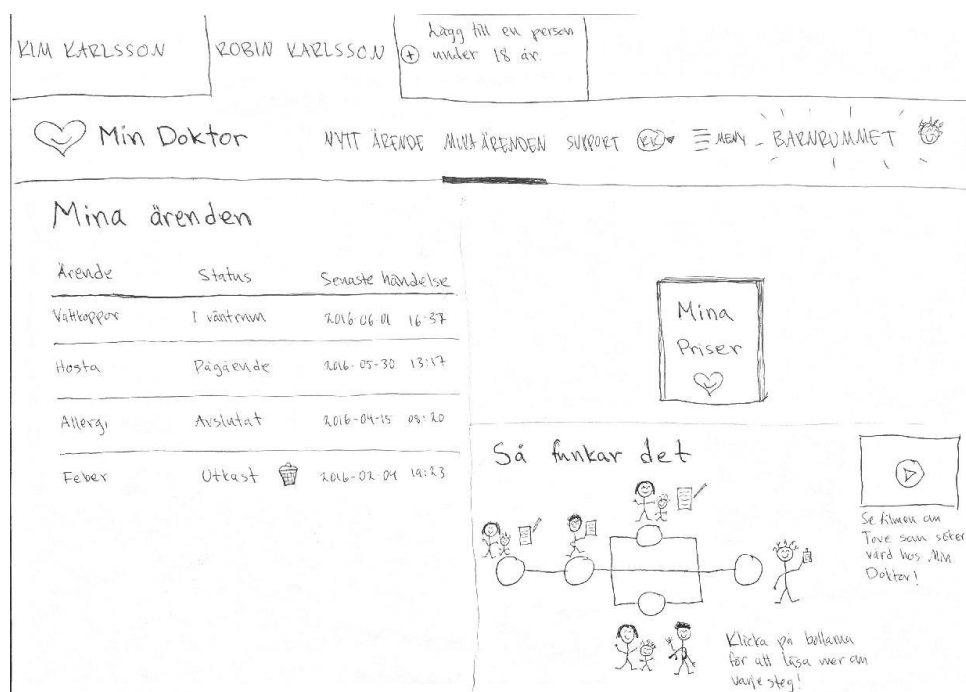 KIM KARLSSON
ROBIN KARLSSON
Lägg till en person
under 18 år.
Min Doktor
NYTT ÄRENDE
MINA ÄRENDEN
SUPPORT
KK
MENY
BARNRUMMET
Mina ärenden
Ärende Status Senaste händelse
Vattkoppor I väntrum 2016-06-01 16:37
Hosta Pågående 2016-05-30 13:17
Allergi Avslutat 2016-04-15 08:20
Feber Utkast 2016-02-04 19:23
Mina
Priser
Så funkar det
Se filmen om
Tove som söker
vård hos Min
Doktor!
Klicka på bollarna
för att läsa mer om
varje steg!